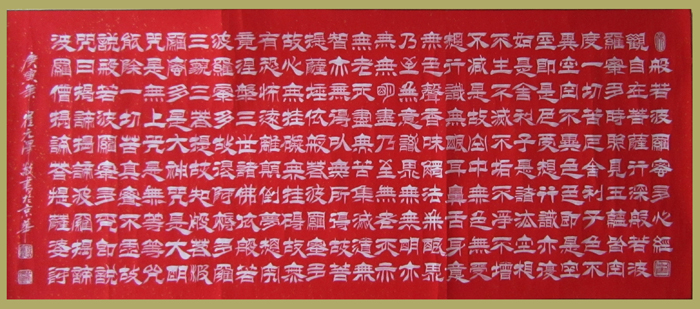 般若波羅蜜多心經
觀自在菩薩行深般若波
羅蜜多時照見五蘊皆空
度一切苦厄舍利子色不
異空空不異色色即是空
空即是色受想行識亦復
如是舍利子是諸法空相
不生不滅不垢不淨不增
不減是故空中無色無受
想行識無眼耳鼻舌身意
無色聲香味觸法無眼界
乃至無意識界無無明亦
無無明盡乃至無老死亦
無老死盡無苦集滅道無
智亦無得以無所得故菩
提薩埵依般若波羅蜜多
故心無罣礙無罣礙故無
有恐怖遠離顛倒夢想究
竟涅槃三世諸佛依般若
波羅蜜多故得阿耨多羅
三藐三菩提故知般若波
羅蜜多是大神咒是大明
咒是無上咒是無等等咒
能除一切苦真實不虛故
説般若波羅蜜多咒即説
咒曰揭諦揭諦波羅揭諦
波羅僧揭諦菩提薩婆訶
庚寅年 敬書於京華